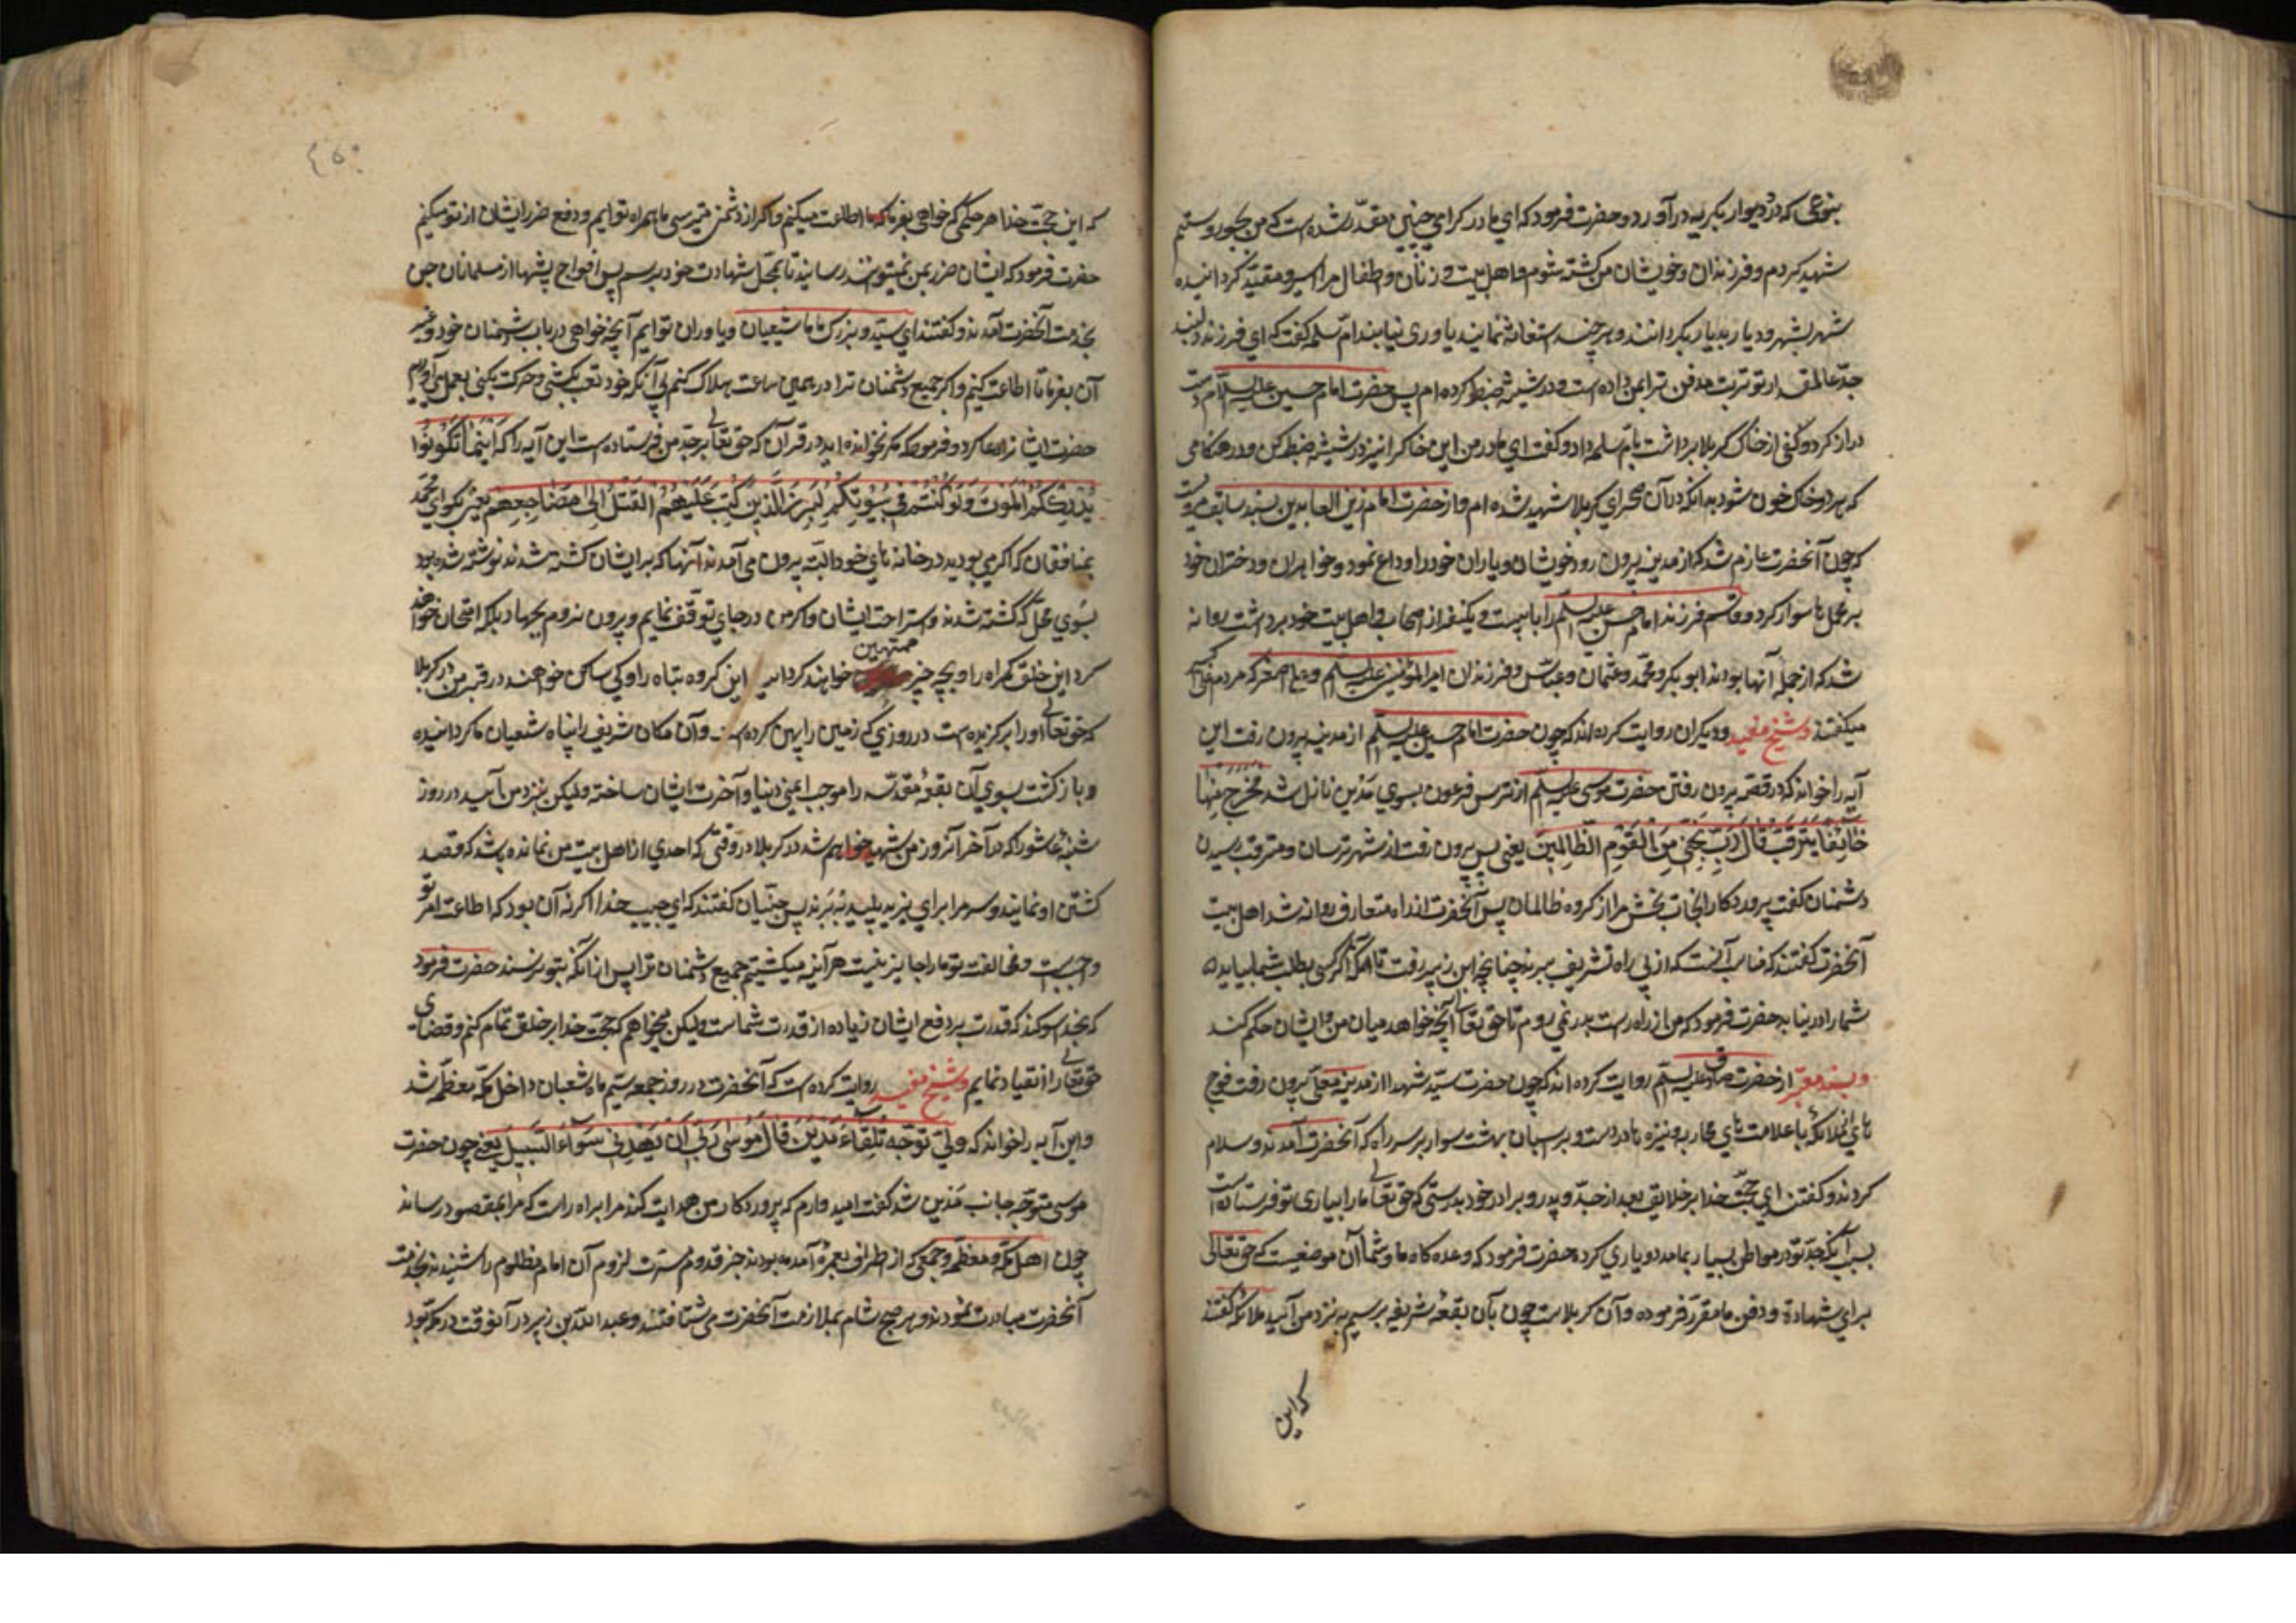 بنوعی که در و دیوار بگریه در آورد و حضرت فرمود که ای مادر گرامی چنین مقدر شده است که من بجور و ستم
شهید کردم و فرزندان و خویشان من کشته شوم و اهل بیت و زنان و اطفال مرا اسیر و مقید گردانیده
شهر بشهر و دیار بدیار بگردانند و هر چند استغاثه نمایند یاوری نیابند ام سلمه گفت که ای فرزند دلبند
جد عالمقدار تو تربت مدفن ترا بمن داده است و در شیشه ضبط کرده ام پس حضرت امام حسین علیه السلام دست
دراز کرد و کفی از خاک کربلا برداشت بام سلمه داد و گفت ای مادر من این خاکرا نیز در شیشه ضبط کن و در هنگامی
که هر دو خاک خون شود بدانکه در آن صحرای کربلا شهید شده ام و از حضرت امام زین العابدین بسند سابق مرویست
که چون آنحضرت عازم شد که از مدینه بیرون رود خویشان و یاران خود را وداع نمود و خواهران و دختران خود
بر محمل ها سوار کرد و قاسم فرزند امام حسن علیه السلم را با بیست و یکنفر از اصحاب و اهل بیت خود برداشت روانه
شد که از جمله آنها بودند ابوبکر و محمد و عثمان و عباس و فرزندان امیر المؤمنین علیه السلم و علی اصغر که مردم علی اکبر
میگفتند و شیخ مفید و دیگران روایت کرده اند که چون حضرت امام حسین علیه السلم از مدینه بیرون رفت این
آیه را خواند که در قصه بیرون رفتن حضرت موسی علیه السلم از ترس فرعون بسوی مدین نازل شد فخرج منها
خائفا یترقب قال رب نجنی من القوم الظالمین یعنی پس بیرون رفت از شهر ترسان و مترقب رسیدن
دشمنان گفت پروردگارا نجات بخش مرا از گروه ظالمان پس آنحضرت از راه متعارف روانه شد اهل بیت
آنحضرت گفتند که مناسب آنست که از بی راه تشریف ببرند چنانچه ابن زبیر رفت تا آنکه اگر کسی بطلب شما بیاید
شما را در نیابد حضرت فرمود که من از راه راست بدر نمی روم تا حق تعالی آنچه خواهد میان من و ایشان حکم کند
و بسند معتبر از حضرت صادق علیه السلم روایت کرده اند که چون حضرت سید شهدا از مدینه معلی بیرون رفت فوج
های از ملائکه با علامت های محاربه و نیزه ها در دست و بر اسبان بهشت سوار بر سر راه که آنحضرت آمدند و سلام
کردند و گفتند ای حجت خدا بر خلایق بعد از جد و پدر و برادر خود بدرستی که حق تعالی ما را بیاری تو فرستاده است
بسبب آنکه جد تو در مواطن بسیار بما مدد و یاری کرده حضرت فرمود که وعده گاه ما و شما آن موضعیست که حق تعالی
برای شهادة و دفن ما مقرر فرموده و آن کربلاست چون بآن بقعه شریفه برسیم به نزد من آئید ملائکه گفتند
که این
که این حجت خدا هر حکمی که خواهی بفرما که ما اطاعت میکنیم و اگر از دشمن میترسی ما همراه توایم و دفع ضرر ایشان از تو میکنیم
حضرت فرمود که ایشان ضرر بمن نمیتوانند رسانید تا بمحل شهادت خود برسم پس افواج بیشمار از مسلمانان جن
بخدمت آنحضرت آمدند و گفتند ای سید و بزرگ ما ما شیعیان و یاوران توایم آنچه خواهی در باب دشمنان خود و غیر
آن بفرما تا اطاعت کنیم و اگر جمیع دشمنان ترا در همین ساعت هلاک کنیم بی آنکه خود تعب بکشی و حرکت بکنی بعمل می آوریم
حضرت ایشانرا دعا کرد و فرمود که مگر نخوانده اید در قرآن که حق تعالی بر جد من فرستاده است این آیه را که اینما تکونوا
یدرککم الموت و لو کنتم فی بیوتکم لبرز الذین کتب علیهم القتل الی مضاجعهم یعنی بگو ای محمد
بمنافقان که اگر می بودید در خانه های خود البته بیرون می آمدند آنها که بر ایشان کشته شدن نوشته شده بود
بسوی محل کشته شدن و استراحت ایشان و اگر من در جای توقف نمایم و بیرون نروم بجهاد بکه امتحان خواهند
کرد این خلق گمراه را و بچه چیز ممتهن خواهند کرد این گروه تباه را و کی ساکن خواهند در قبر من در کربلا
که حق تعالی او را برگزیده است در روزی که زمین را پهن کرده است و آن مکان شریف را پناه شعیان ما گردانیده
و بازگشت بسوی آن بقعه مقدسه را موجب ایمنی دنیا و آخرت ایشان ساخته ولیکن بنزد من آئید در روز
شنبه عاشورا که در آخر آنروز من شهید خواهم شد در کربلا در وقتی که احدی از اهل بیت من نمانده باشد که قصد
کشتن او نمایند و سر مرا برای یزید پلید ببرند پس جنیان گفتند که ای حبیب خدا اگر نه آن بود که اطاعت امر تو
واجبست و مخالفت تو ما را جایز نیست هر آینه میکشتیم جمیع دشمنان ترا پیش از آنکه بتو برسند حضرت فرمود
که بخدا سوگند که قدرت بر دفع ایشان زیاده از قدرت شماست ولیکن میخواهم که حجت خدا بر خلق تمام کنم و قضای
حق تعالی را انقیاد نمایم و شیخ مفید روایت کرده است که آنحضرت در روز جمعه سیم ماه شعبان داخل مکه معظمه شد
و این آیه را خواند که و لما توجه تلقاء مدین قال موسی ربی ان یهدینی سواء السبیل یعنی چون حضرت
موسی متوجه جانب مدین شد گفت امید وارم که پروردگار من هدایت کند مرا براه راست که مرا بمقصود رساند
چون اهل مکه معظمه و جمعی که از اطراف بعمره آمده بودند خبر قدوم مسرت لزوم آن امام مظلوم را شنیدند بخدمت
آنحضرت مبادرت نمودند و هر صبح و شام بملازمت آنحضرت می شتافتند و عبد الله بن زبیر در آنوقت در مکه بود